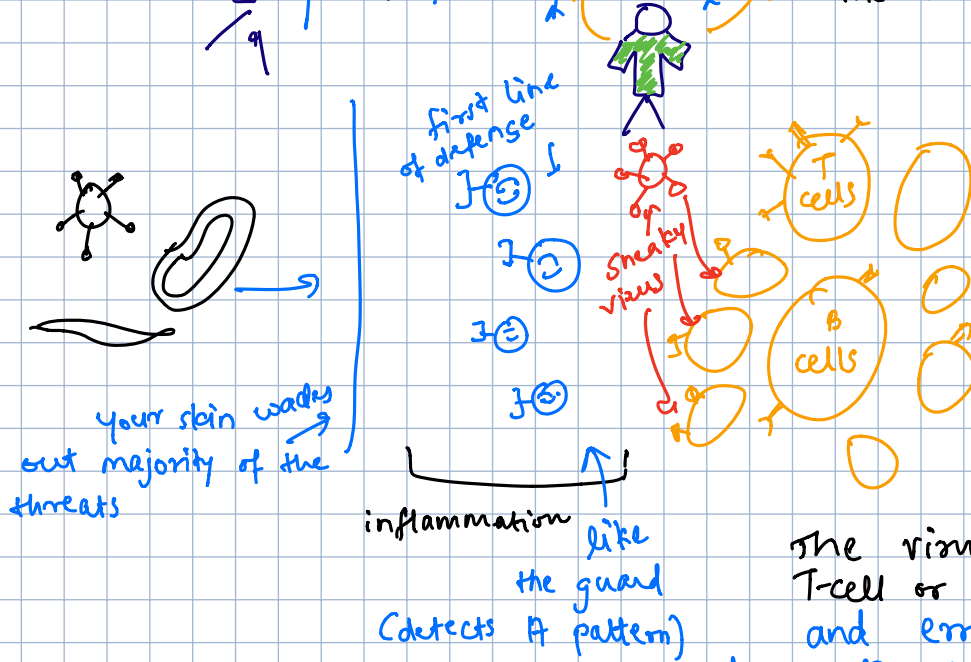 first line
of defense
T
cells
sneaky
virus
B
cells
your skin wades
out majority of the
threats
inflammation
like
the guard
(detects A pattern)
The
T-cell or
and